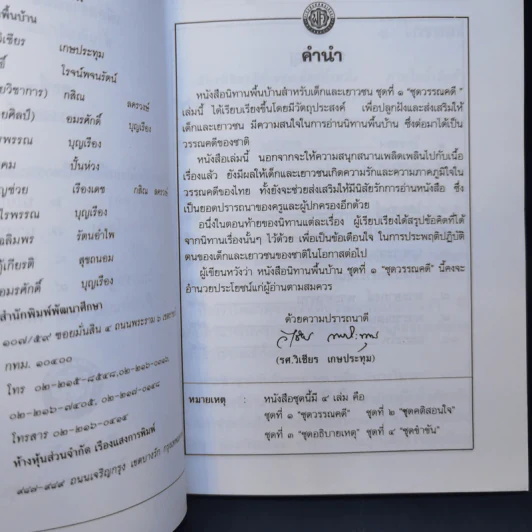 พื้นบ้าน
วิเชียร เกษประทุม
ธิ์ โรจน์พจนรัตน์
ยวิชาการ) กสิณ
ยศิลป์) อมรศักดิ์ บุญเรือง
รพรรณ บุญเรือง
คม ปั้นห่วง
ญช่วย เรืองเดช กสิณ
ไรพรรณ บุญเรือง
ฉลิมพร รัตนอำไพ
กู้เกียรติ สุขถนอม
อมรศักดิ์ บุญเรือง
สำนักพิมพ์พัฒนาศึกษา
๑๐๗/๕๙ ซอยมั่นสิน ๔ ถนนพระราม ๖
กทม. ๑๐๔๐๐
โทร ๐๒-๒๑๕-๘๕๔๘,
๐๒-๒๑๖-๗๔๐๕,
โทรสาร ๐๒-๒๑๖-๐๔๑๔
ห้างหุ้นส่วนจำกัด เรืองแสงการพิมพ์
ถนนเจริญกรุง เขตบางรัก
คำนำ
หนังสือนิทานพื้นบ้านสำหรับเด็กและเยาวชน ชุดที่ ๑ "ชุดวรรณคดี"
เล่มนี้ ได้เรียบเรียงขึ้นโดยมีวัตถุประสงค์ เพื่อปลูกฝังและส่งเสริมให้
เด็กและเยาวชน มีความสนใจในการอ่านนิทานพื้นบ้าน ซึ่งต่อมาได้เป็น
วรรณคดีของชาติ
หนังสือเล่มนี้ นอกจากจะให้ความสนุกสนานเพลิดเพลินไปกับเนื้อ
เรื่องแล้ว ยังมีผลให้เด็กและเยาวชนเกิดความรักและความภาคภูมิใจใน
วรรณคดีของไทย ทั้งยังจะช่วยส่งเสริมให้มีนิสัยรักการอ่านหนังสือ ซึ่ง
เป็นยอดปรารถนาของครูและผู้ปกครองอีกด้วย
อนึ่งในตอนท้ายของนิทานแต่ละเรื่อง ผู้เรียบเรียงได้สรุปข้อคิดที่ได้
จากนิทานเรื่องนั้นๆ ไว้ด้วย เพื่อเป็นข้อเตือนใจ ในการประพฤติปฏิบัติ
ตนของเด็กและเยาวชนของชาติในโอกาสต่อไป
ผู้เขียนหวังว่า หนังสือนิทานพื้นบ้าน ชุดที่ ๑ "ชุดวรรณคดี" นี้คงจะ
อำนวยประโยชน์แก่ผู้อ่านตามสมควร
ด้วยความปรารถนาดี
(รศ.วิเชียร เกษประทุม)
หมายเหตุ : หนังสือชุดนี้มี ๔ เล่ม คือ
ชุดที่ ๑ "ชุดวรรณคดี" ชุดที่ ๒ "ชุดคติสอนใจ"
ชุดที่ ๓ "ชุดอธิบายเหตุ" ชุดที่ ๔ "ชุดขำขัน"